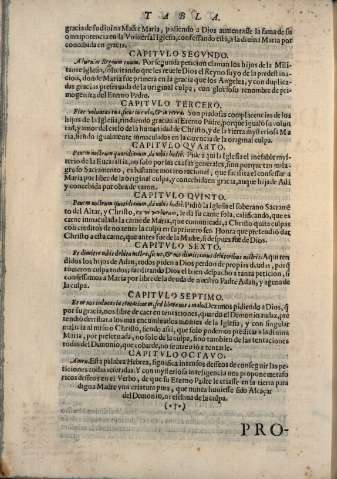 TABLA.
gracia de su divina Madre Maria, pidiendo a Dios aumentasse la fama de su
omnipotencia en la Vniversal Iglesia, confessando esta, a la divina Maria por
concebida en gracia.
CAPITVLO SEGVNDO.
Por segunda peticion claman los hijos de la Mili-
tante Iglesia, que les revele Dios el Reyno suyo de la predesti-
nacion, donde Maria fue primera en la gracia que los Angeles, y con duplica-
das gracias preservada de la original culpa, con glorioso renombre de pri-
mogenita del Eterno Padre.
CAPITVLO TERCERO.
Fiat voluntas tua, sicut in caelo, & in terra. Son piadosas complacencias de los
hijos de la Iglesia, rindiendo gracias al Eterno Padre, porque igualò su volun-
tad, y amor del cielo de la humanidad de Christo, y de la tierra mysteriosa Ma-
ria, siendo igualmente inmaculados en la carencia de la original culpa.
CAPITVLO QVARTO.
Panem nostrum quotidianum da nobis hodie. Pide aqui la Iglesia el inefable mys-
terio de la Eucaristia, no solo por las causas generales, sino porque tan mila-
groso Sacramento, es bastante motivo racional, que facilita el confessar a
Maria por libre de la original culpa, y concebida en gracia, aunque hija de Adã,
y concebida por obra de varon.
CAPITVLO QVINTO.
Panem nostrum quotidianum, da nobis hodie. Pidiò la Iglesia el soberano Sacramẽ-
to del Altar, y Christo, le dà su carne sola, calificando, que es
carne inmaculada la carne de Maria, que comunicada, a Christo quita culpas
con creditos de no tener la culpa en su primero ser. Honra que pretendiò dar
Christo a esta carne, que antes fue de la Madre, si despues fue de Dios.
CAPITVLO SEXTO.
Et dimitte nobis debita nostra, sicut, & nos dimittimus debitoribus nostris. Aqui ren-
didos los hijos de Adan, todos piden a Dios perdon de propias deudas, pues
tuvieron culpa todos, facilitando Dios el buen despacho a tanta peticion, si
confessamos a Maria por libre de la deuda de nuestro Padre Adan, y agena de
la culpa.
CAPITVLO SEPTIMO.
Et ne nos inducas in tentationem, sed libera nos a malo. Rezamos pidiendo a Dios, q̃
por su gracia, nos libre de caer en tentaciones, quando el Demonio audaz, pre-
tendiò derribar a los mas encumbrados montes de la Iglesia, y con singular
malicia al mismo Christo, siendo assi, que solo podemos predicar a la divina
Maria, por preservada, no solo de la culpa, sino tambien de las tentaciones
todas del Demonio, que cobarde, no se atreviò a tentarla.
CAPITVLO OCTAVO.
Amen. Esta palabra Hebrea, significa intensos deseos de conseguir las pe-
ticiones todas referidas. Y con mysteriosa inteligencia nos propone metafo-
ricos deseos en el Verbo, de que su Eterno Padre le criasse en la tierra para
digna Madre vna criatura pura, que nunca huviesse sido Alcaçar
del Demonio, ni esclava de la culpa.
PRO-